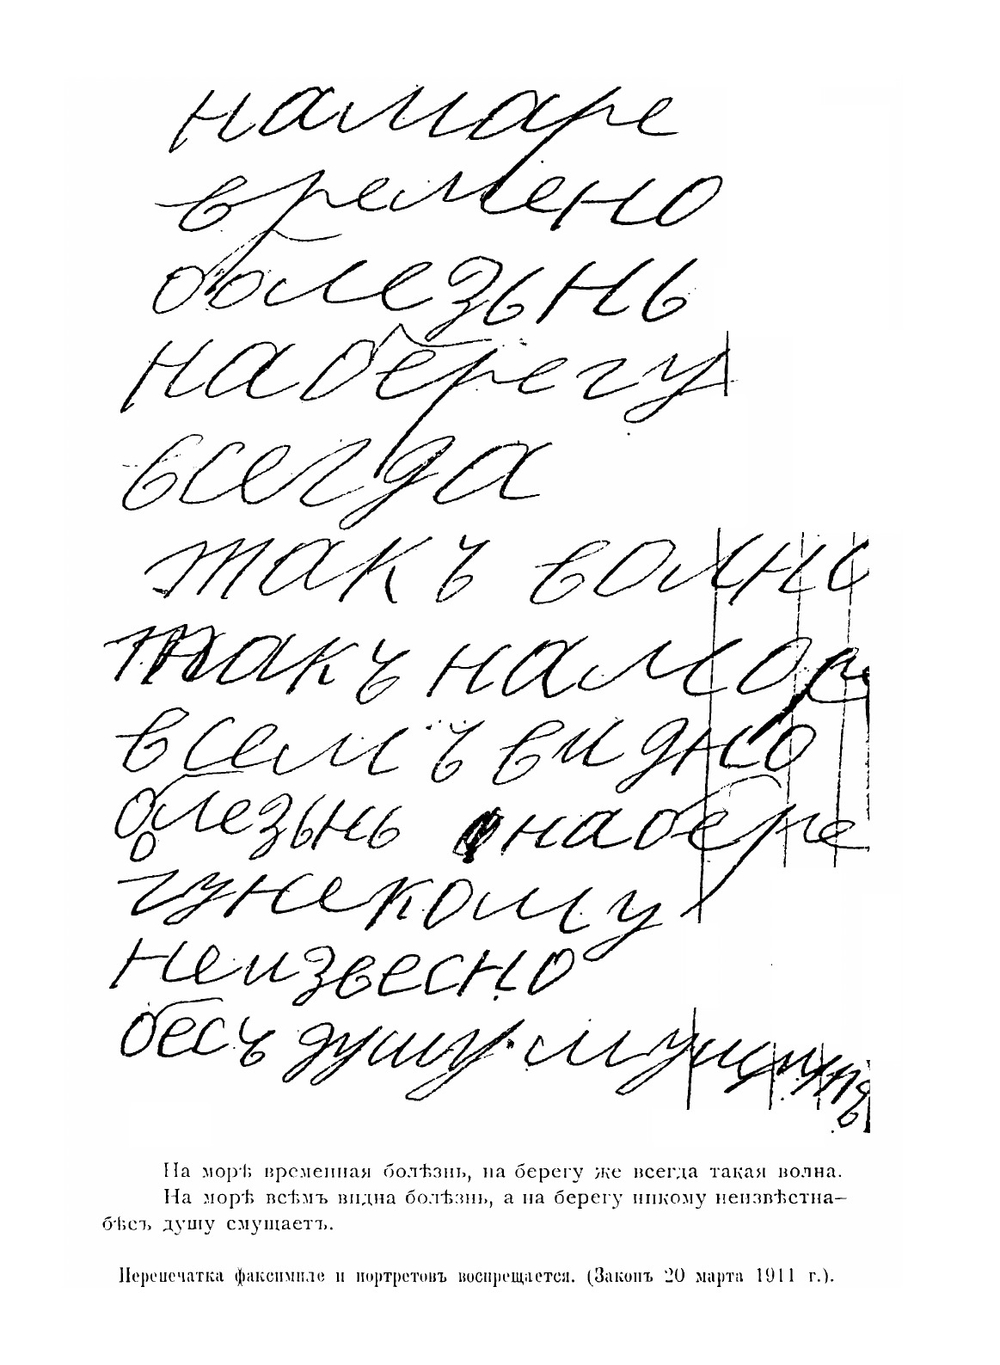 намаре
времено
болезьнь
наберегу
всегда
такъ волно
такъ на море
всемъ видно
болезьнь набере
гунекому
неизвесно
бесъ душу мущаитъ
На морѣ временная болѣзнь, на берегу же всегда такая волна.
На морѣ всѣмъ видна болѣзнь, а на берегу никому неизвѣстна—
бѣсъ душу смущаетъ.
Перепечатка факсимиле и портретовъ воспрещается. (Законъ 20 марта 1911 г.).